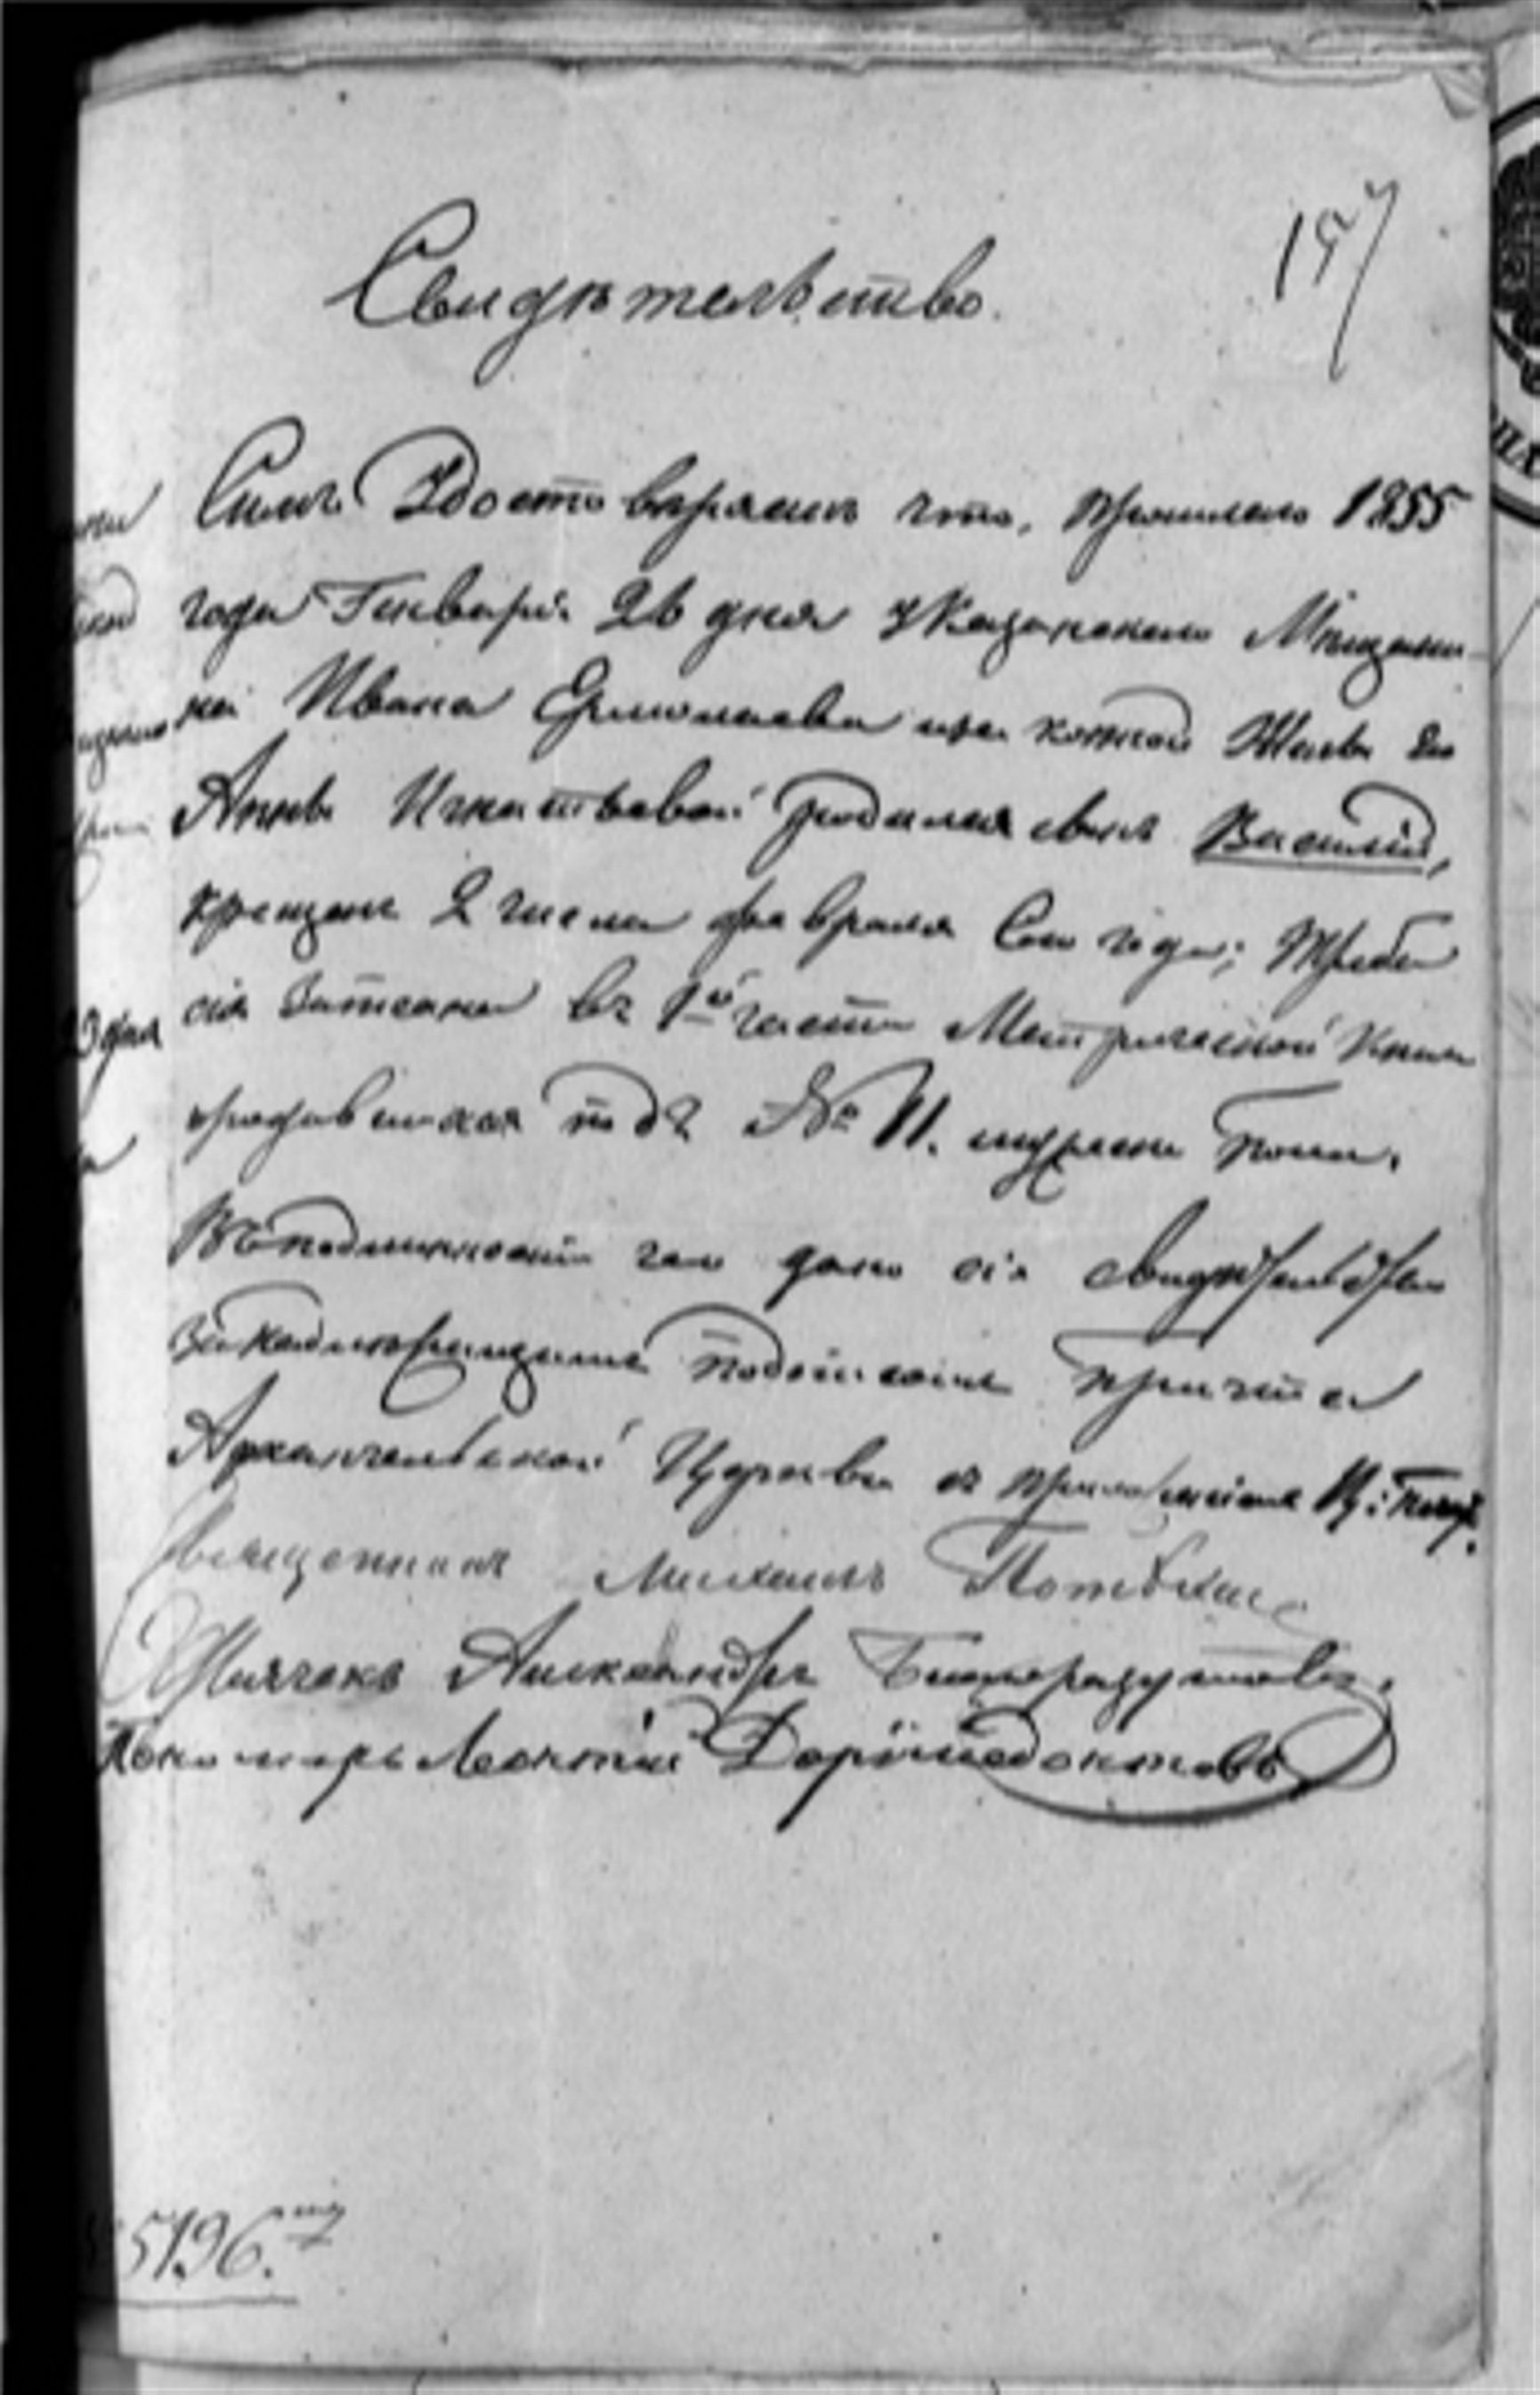 157
Свидѣтельство.
Симъ Удостовѣряемъ что, прошлаго 1855
года Генваря 26 дня у Казанскаго Мѣщани-
на Ивана Ермолаева и законной Жены его
Анны Игнатьевой родился сынъ Василій,
крещенъ 2 числа февраля Сего года; Треба
сія записана въ 1й части Метрической Книги
родившихся подъ № 11. мужеска пола.
Въ подлинности чего дано сіе свидѣтельство
за надлежащимъ подписомъ Причта
Архангельской Церкви съ приложеніемъ Ц: Печа.
Священникъ Михаилъ
Діячекъ Александръ
Пономарь Леонтій Доримедонтовъ
5196.